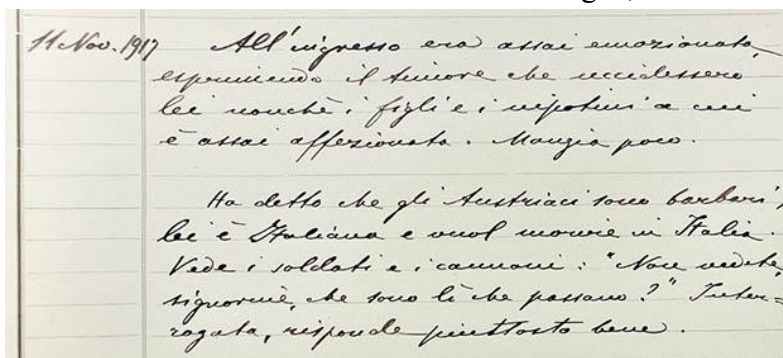 11 Nov. 1917 All'ingresso era assai emozionata,
esprimendo il timore che uccidessero
lei nonchè i figli e i nipotini a cui
è assai affezionata. Mangia poco.
Ha detto che gli Austriaci sono barbari,
lei è Italiana e vuol morire in Italia.
Vede i soldati e i cannoni: "Non vedete,
signorine, che sono lì che passano?" Inter=
rogata, risponde piuttosto bene.